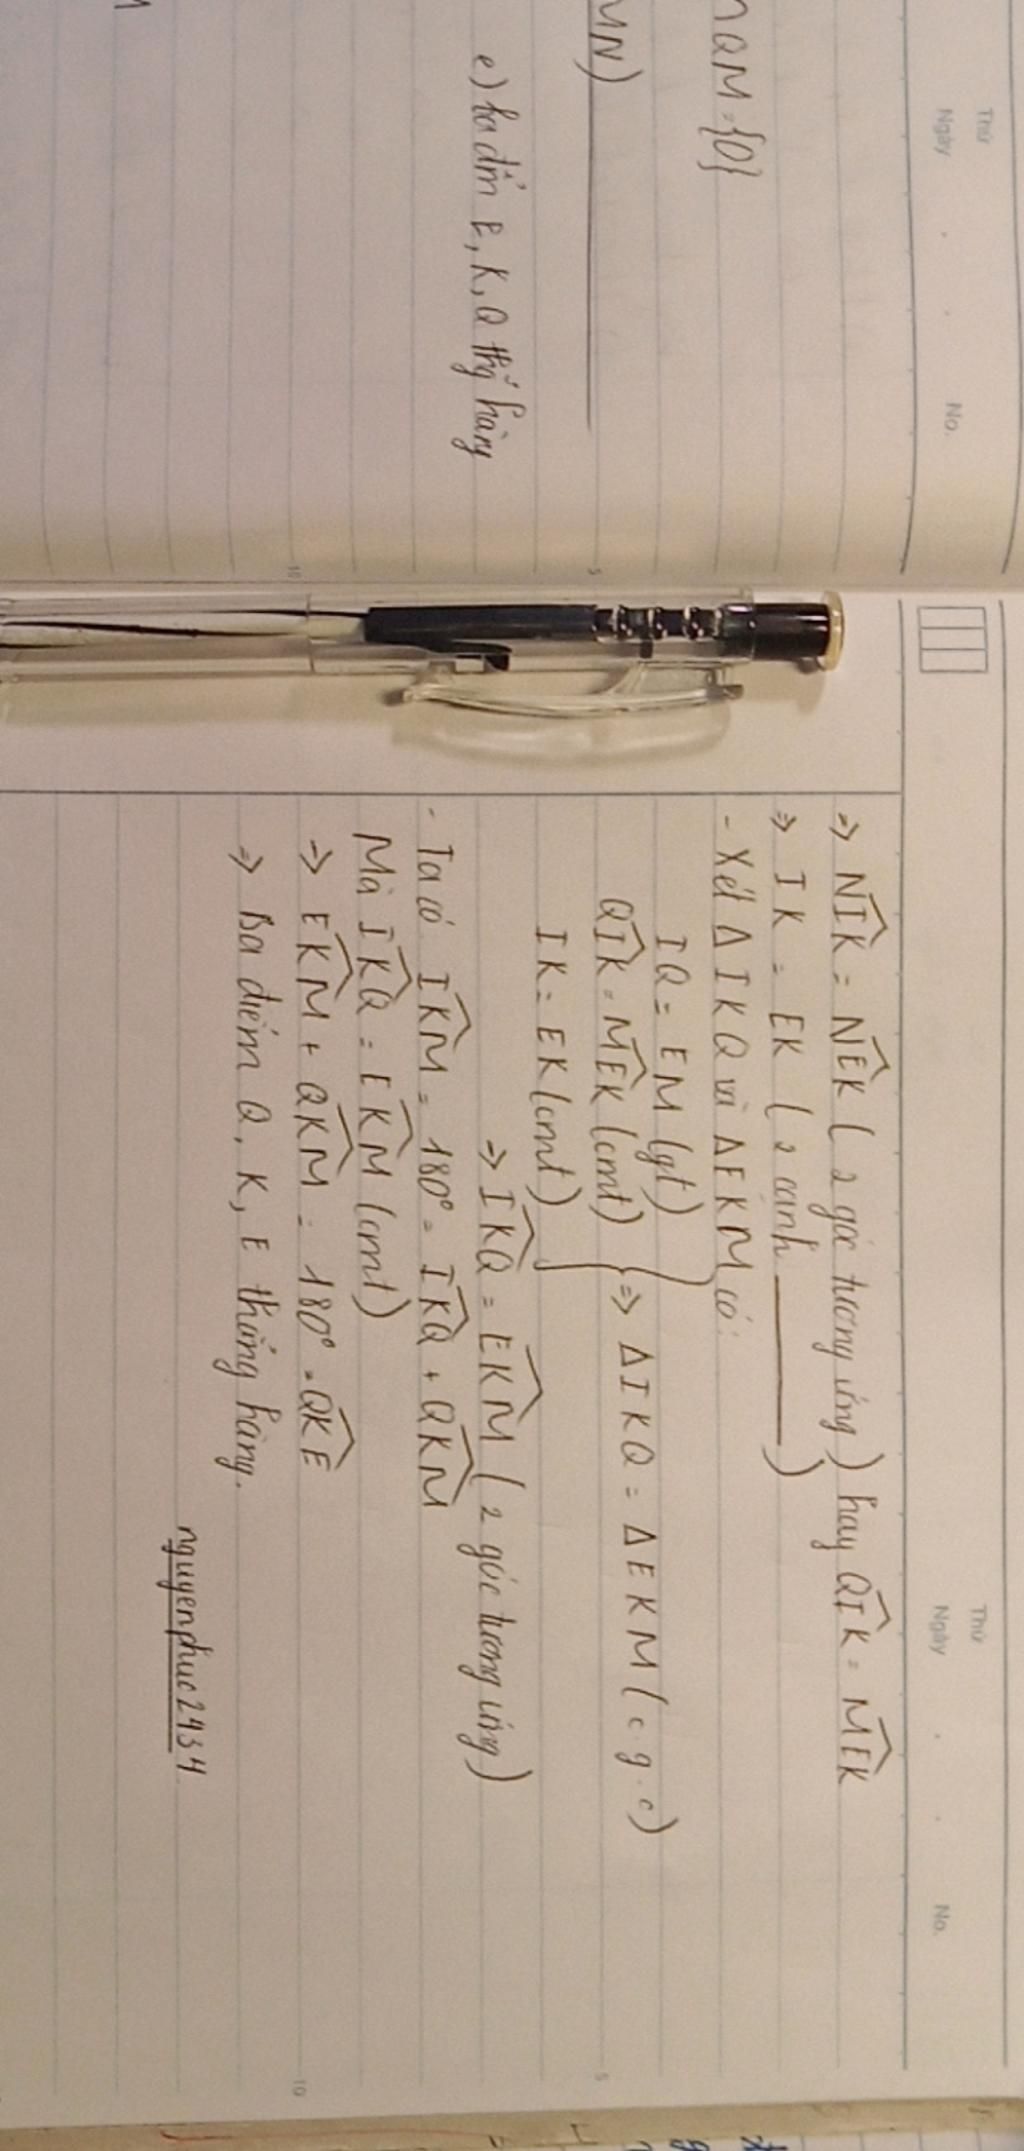 Thứ
Ngày . . No.
QM = {O}
MN)
e) ba điể E, K, Q thẳg hàng
5
10
Thứ
Ngày . . No.
=> NIK = NEK ( 2 góc tương ứng ) hay QIK = MEK
=> IK = EK ( 2 cạnh ______ )
- Xét Δ IKQ và Δ EKM có:
IQ = EM (gt)
QIK = MEK (cmt) } => Δ IKQ = Δ EKM ( c . g . c)
IK = EK (cmt)
=> IKQ = EKM ( 2 góc tương ứng )
- Ta có IKM = 180° = IKQ + QKM
Mà IKQ = EKM (cmt)
=> EKM + QKM = 180° = QKE
=> Ba điểm Q, K, E thẳng hàng.
nguyenphuc2434
5
10